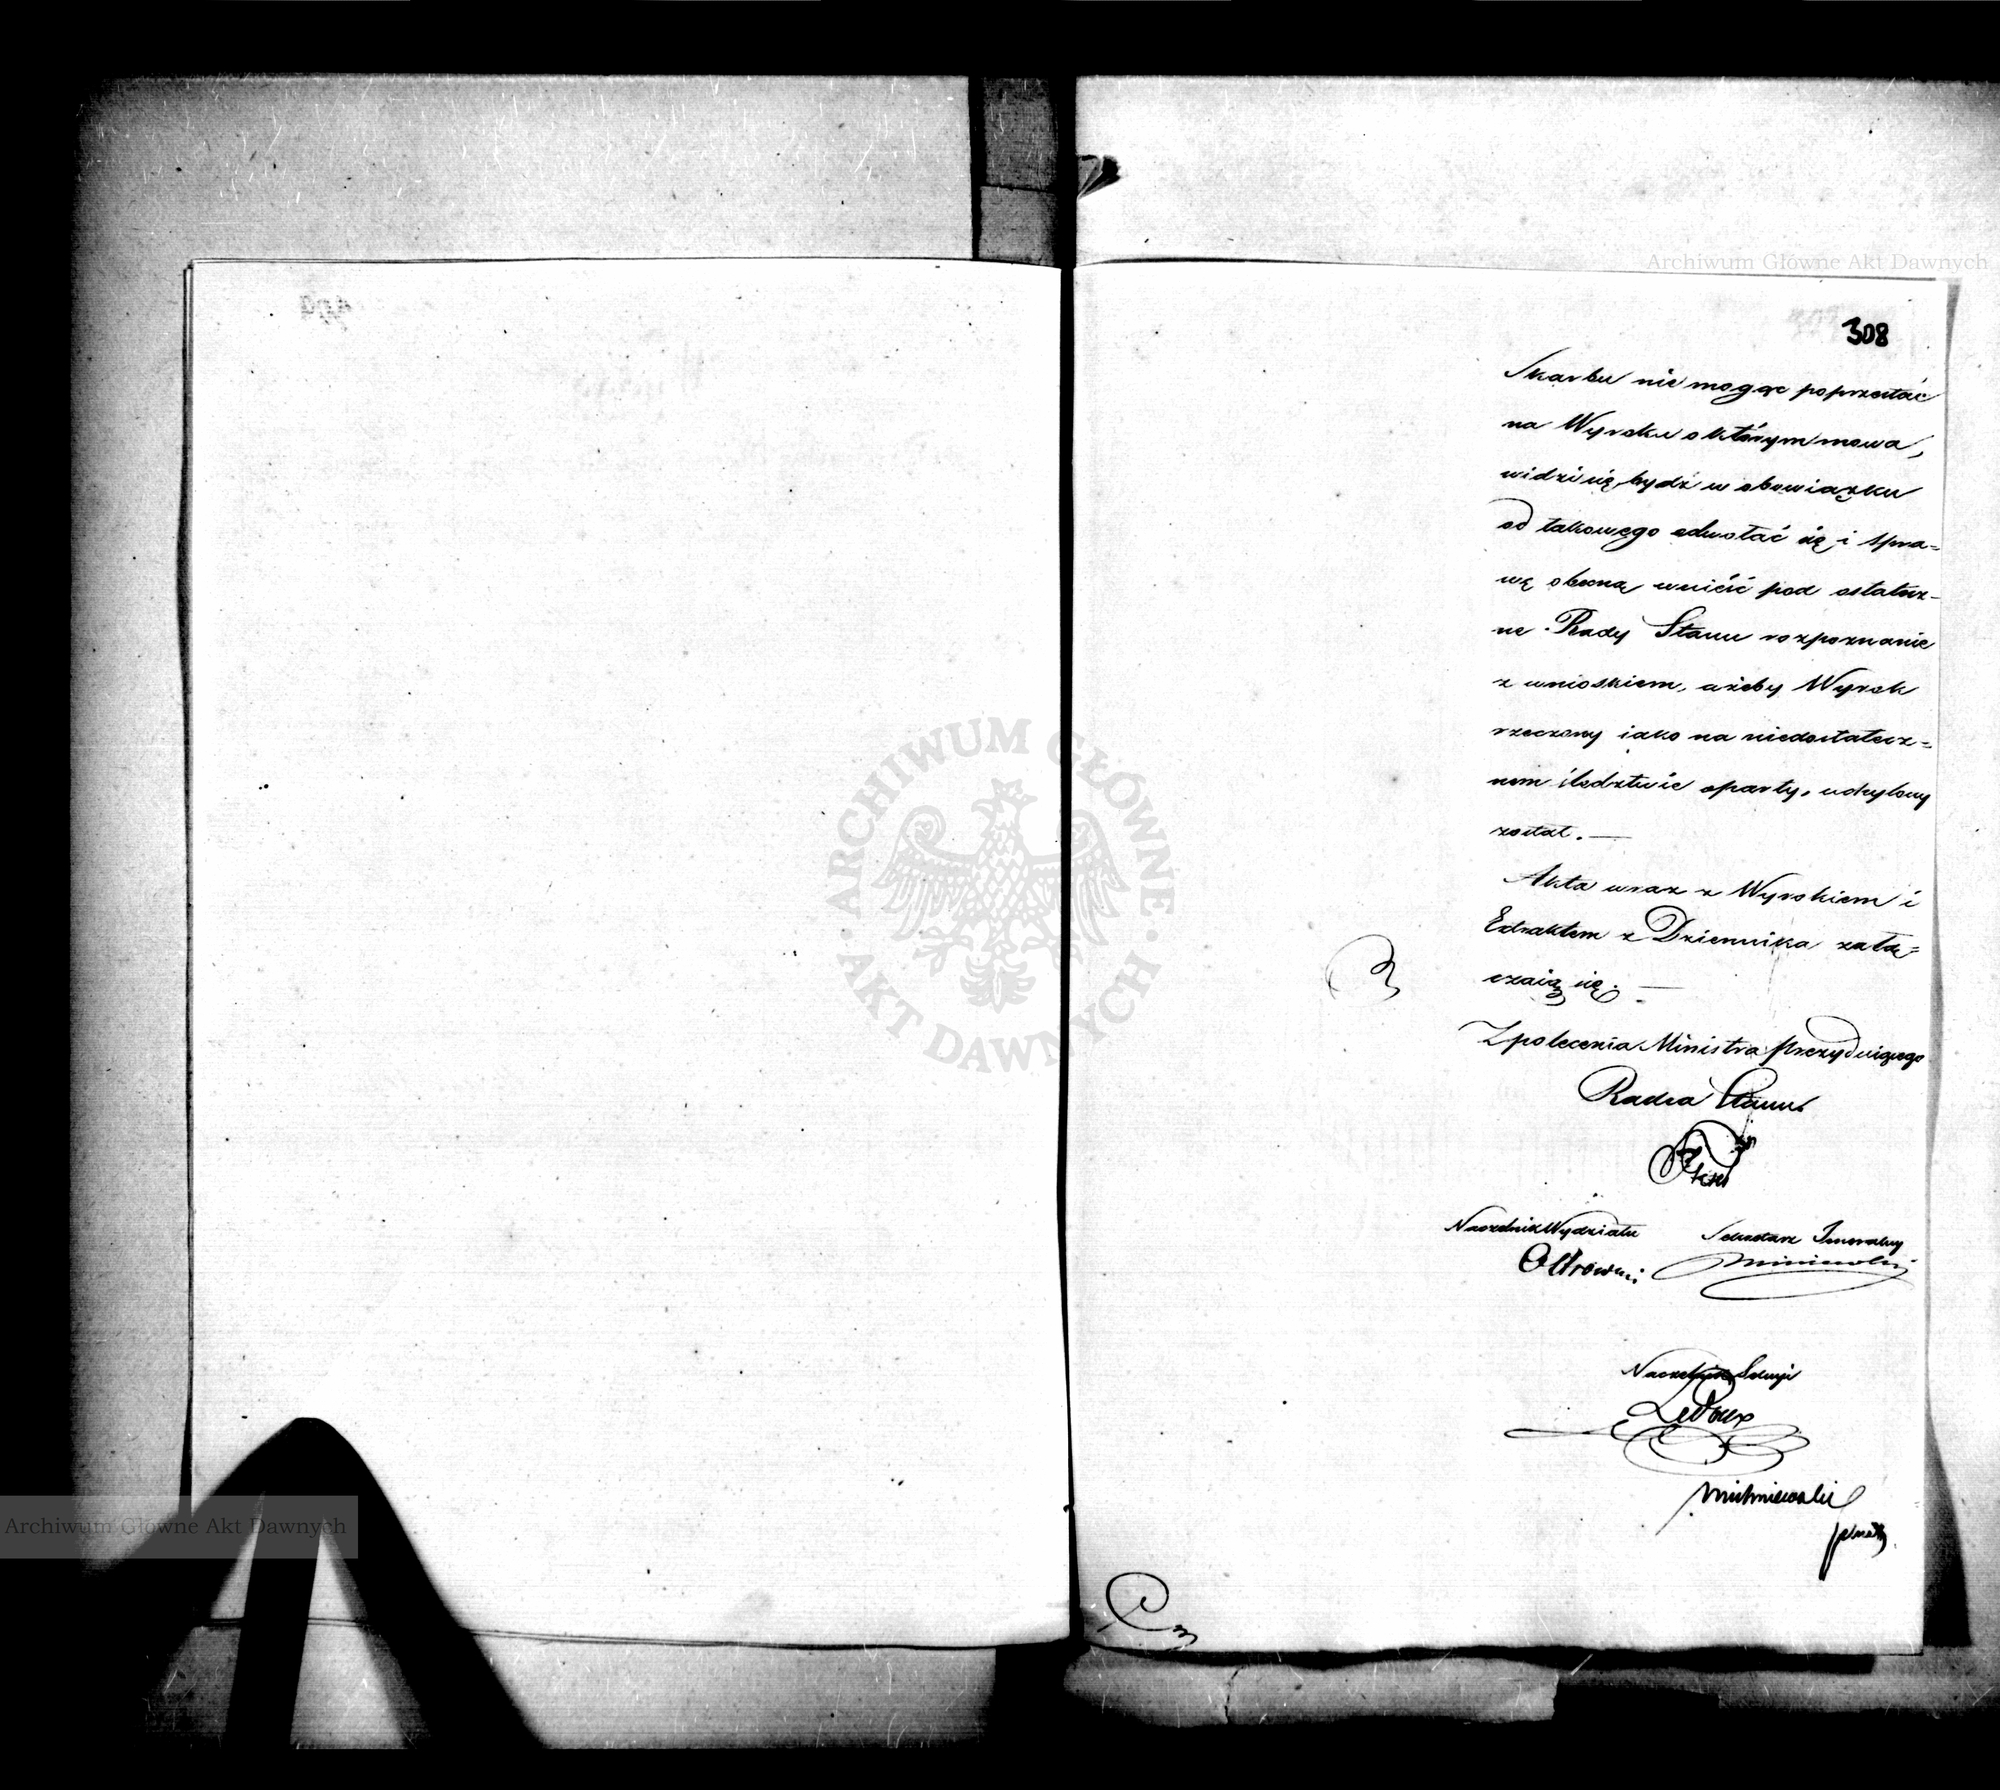 Archiwum Główne Akt Dawnych
308
Skarbu nie mogąc poprzestać
na Wyroku o którym mowa,
widzi się bydź w obowiązku
od takowego odwołać się i spra=
wę obecną wnieść pod ostatecz-
ne Rady Stanu rozpoznanie
z wnioskiem, ażeby Wyrok
rzeczony iako na niedostatecz=
nem śledztwie oparty, uchylony
został. —
Akta wraz z Wyrokiem i
Extraktem z Dziennika załą=
czaią się. —
Z polecenia Ministra Prezyduiącego
Radca Stanu
Naczelnik Wydziału Sekretarz Jeneralny
Ostrowski
Naczelnik Sekcyi
Ledoux
ARCHIWUM GŁÓWNE · AKT DAWNYCH ·
Archiwum Główne Akt Dawnych